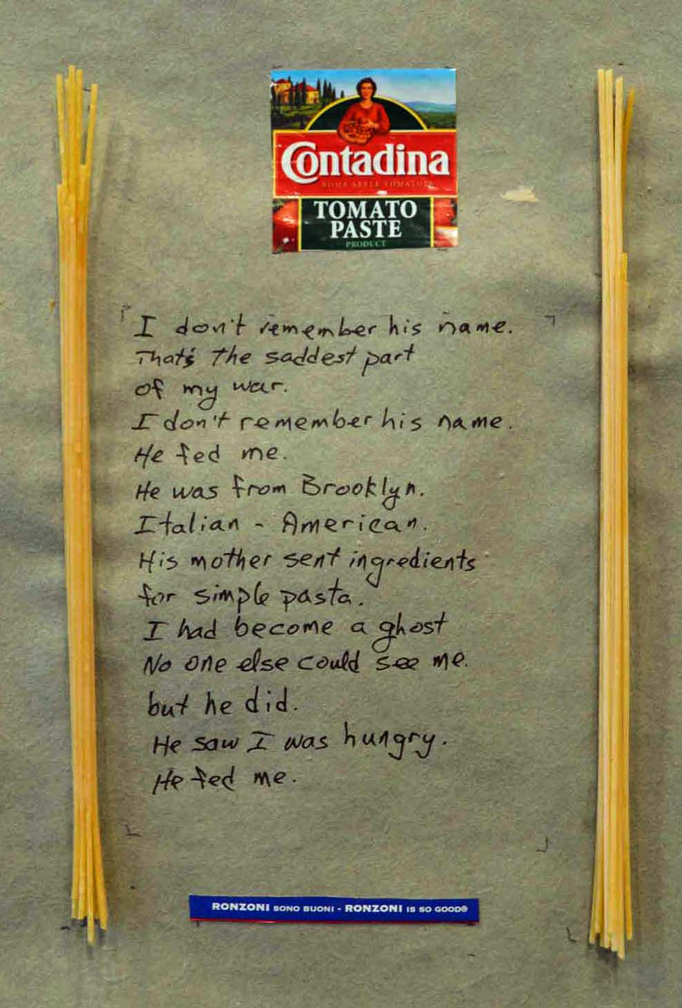 Contadina
ROMA STYLE TOMATOES
TOMATO
PASTE
PRODUCT
I don't remember his name.
That's the saddest part
of my war.
I don't remember his name.
He fed me.
He was from Brooklyn.
Italian - American.
His mother sent ingredients
for simple pasta.
I had become a ghost
No one else could see me.
but he did.
He saw I was hungry.
He fed me.
RONZONI SONO BUONI - RONZONI IS SO GOOD®